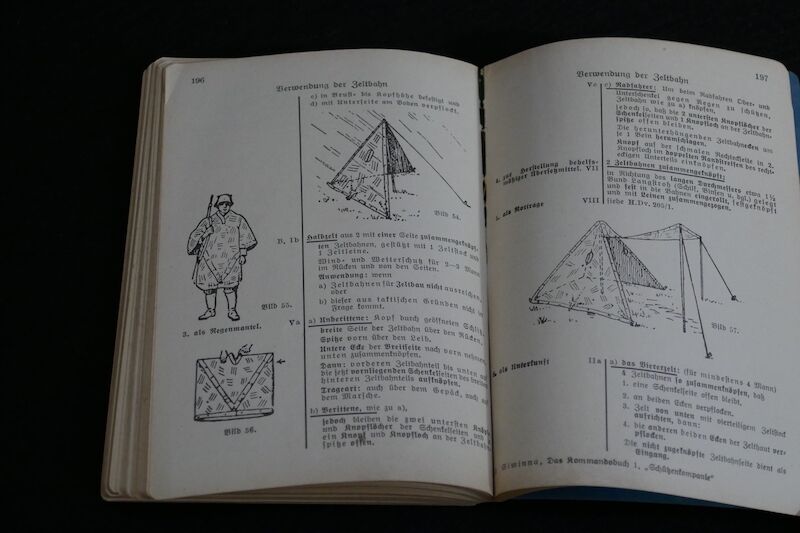 196
Verwendung der Zeltbahn
c) in Brust- bis Kopfhöhe befestigt und
d) mit Unterseite am Boden verpflockt.
Bild 54.
B, Ib Halbzelt aus 2 mit einer Seite zusammengeknöpf-
ten Zeltbahnen, gestützt mit 1 Zeltstock und
1 Zeltleine.
Wind- und Wetterschutz für 2–3 Mann
im Rücken und von den Seiten.
Anwendung: wenn
a) Zeltbahnen für Zeltbau nicht ausreichen,
oder
b) dieser aus taktischen Gründen nicht in
Frage kommt.
Bild 55.
3. als Regenmantel.
Va a) Unberittene: Kopf durch geöffneten Schlitz,
breite Seite der Zeltbahn über den Rücken,
Spitze vorn über den Leib.
Untere Ecke der Breitseite nach vorn nehmen,
unten zusammenknöpfen.
Dann: vorderen Zeltbahnteil bis unten auf
die jetzt vornliegenden Schenkelseiten des
hinteren Zeltbahnteils aufknöpfen.
Trageart: auch über dem Gepäck, auch auf
dem Marsche.
Bild 56.
b) Berittene, wie zu a),
jedoch bleiben die zwei untersten Knöpfe
und Knopflöcher der Schenkelseiten und
ein Knopf und Knopfloch an der Zeltbahn-
spitze offen.
Verwendung der Zeltbahn
197
Vc c) Radfahrer: Um beim Radfahren Ober- und
Unterschenkel gegen Regen zu schützen,
Zeltbahn wie zu a) knöpfen,
jedoch so, daß die 2 untersten Knopflöcher der
Schenkelseiten und 1 Knopfloch an der Zeltbahn-
spitze offen bleiben.
Die herunterhängenden Zeltbahnecken um
je 1 Bein herumschlagen.
Knopf auf der schmalen Rechteckseite in 2.
Knopfloch im doppelten Randstreifen des recht-
eckigen Unterteils einknöpfen.
4. zur Herstellung behelfs-
mäßiger Übersetzmittel. VII
2 Zeltbahnen zusammengeknöpft:
in Richtung des langen Durchmessers etwa 1½
Bund Langstroh (Schilf, Binsen u. dgl.) gelegt
und fest in die Bahnen eingerollt, festgeknöpft
und mit Leinen zusammengezogen.
als Nottrage VIII siehe H.Dv. 205/1.
Bild 57.
als Unterkunft IIa a) das Viererzelt: (für mindestens 4 Mann)
4 Zeltbahnen so zusammenknöpfen, daß
1. eine Schenkelseite offen bleibt.
2. an beiden Ecken verpflocken.
3. Zelt von unten mit vierteiligem Zeltstock
aufrichten, dann:
4. die anderen beiden Ecken der Zelthaut ver-
pflocken.
Die nicht zugeknöpfte Zeltbahnseite dient als
Eingang.
Siwinna, Das Kommandobuch 1, „Schützenkompanie“